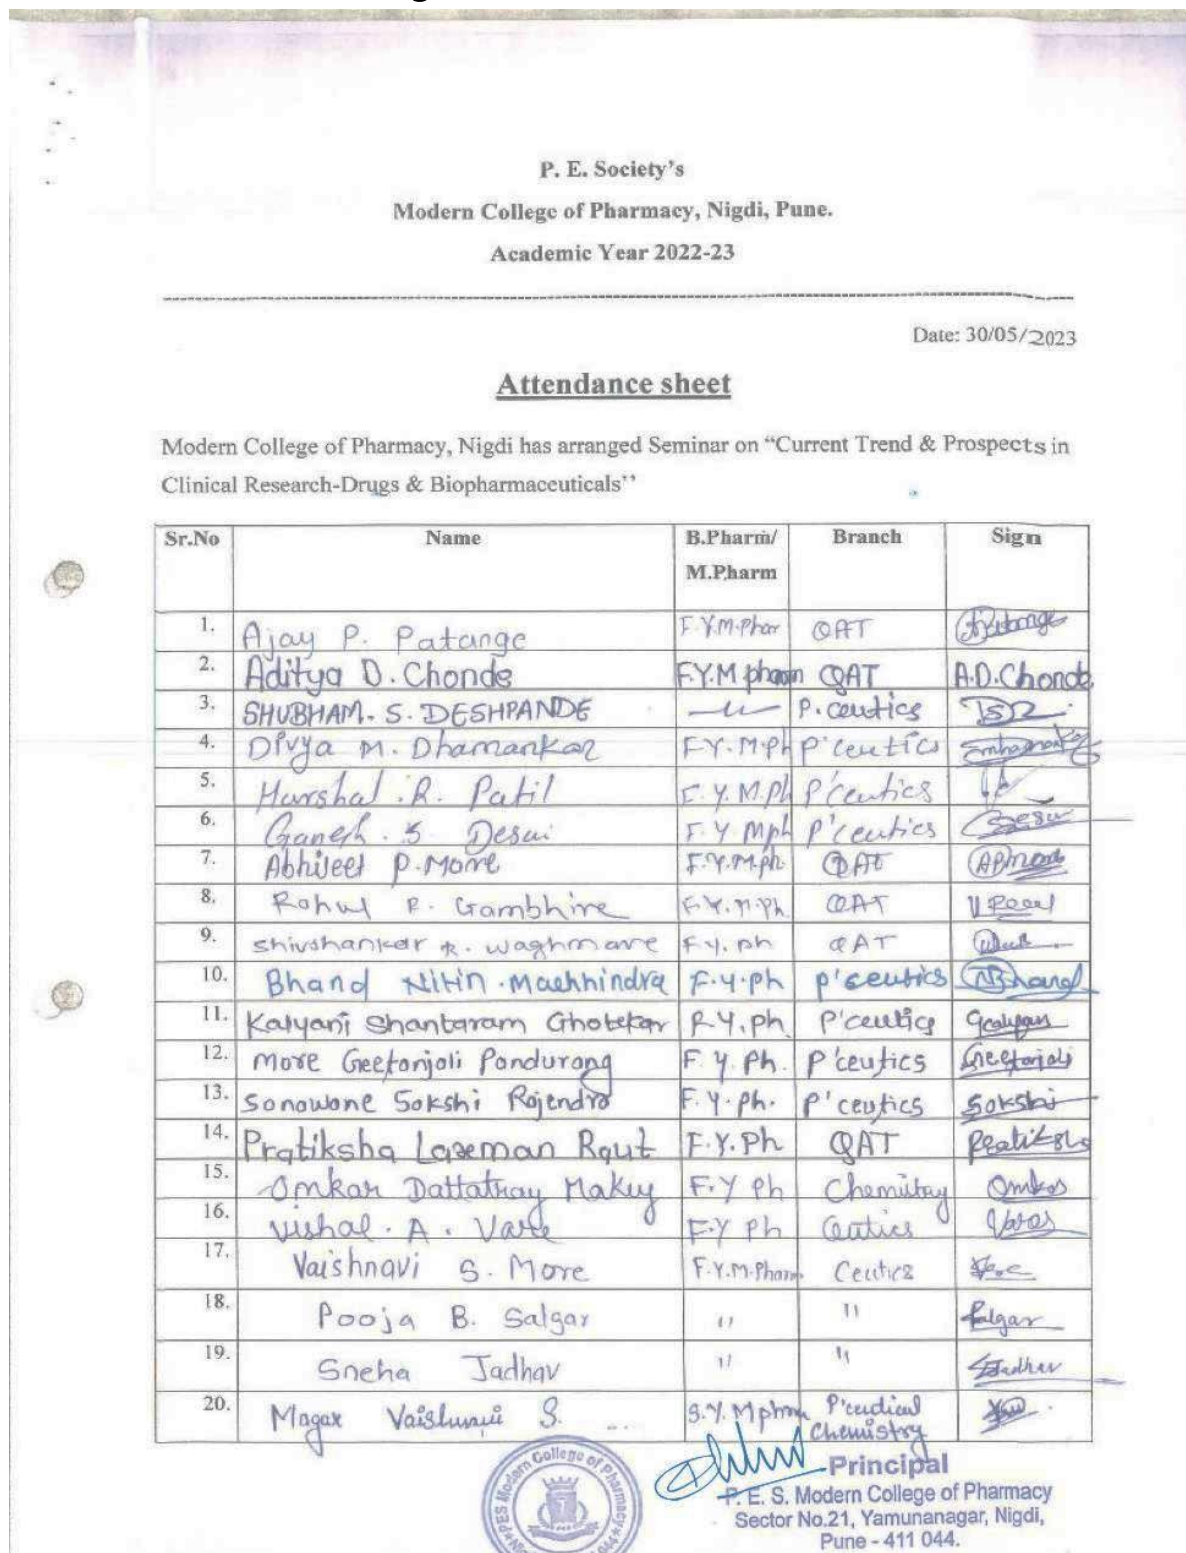 P. E. Society's
Modern College of Pharmacy, Nigdi, Pune.
Academic Year 2022-23
Date: 30/05/2023
Attendance sheet
Modern College of Pharmacy, Nigdi has arranged Seminar on “Current Trend & Prospects in
Clinical Research-Drugs & Biopharmaceuticals’’
Sr.No Name B.Pharm/ M.Pharm Branch Sign
1. Ajay P. Patange F.Y.M.Phar QAT Patange
2. Aditya D. Chonde F.Y.M pharm QAT A.D.Chonde
3. SHUBHAM. S. DESHPANDE —u— P.ceutics
4. Divya M. Dhamankar F.Y. M.Ph P'ceutics
5. Harshal .R. Patil F.Y. M.Ph P'ceutics
6. Ganesh . S Desai F.Y Mph P'ceutics Desai
7. Abhijeet P. More F.Y.M.ph. QAT APMore
8. Rahul R. Gambhire F.Y.M.Ph QAT
9. Shivshankar R. waghmare F.Y. ph QAT
10. Bhand Nitin .Machhindra F.Y.Ph P'ceutics NBhand
11. Kalyani Shantaram Ghotekar F.Y.ph. P'ceutics
12. More Geetanjali Pandurang F.Y.Ph. P'ceutics Geetanjali
13. Sonawane Sakshi Rajendra F.Y.ph. P'ceutics Sakshi
14. Pratiksha Laxman Raut F.Y.Ph QAT Pratiksha
15. Omkar Dattatray F.Y Ph Chemistry Omkar
16. Vishal . A . F.Y Ph Ceutics
17. Vaishnavi S. More F.Y.M.Pharm Ceutics
18. Pooja B. Salgar " " Salgar
19. Sneha Jadhav " " SJadhav
20. Magar Vaishnavi S. S.Y. Mpharm Chemistry
Principal
P. E. S. Modern College of Pharmacy
Sector No.21, Yamunanagar, Nigdi,
Pune - 411 044.
PES Modern College of Pharmacy